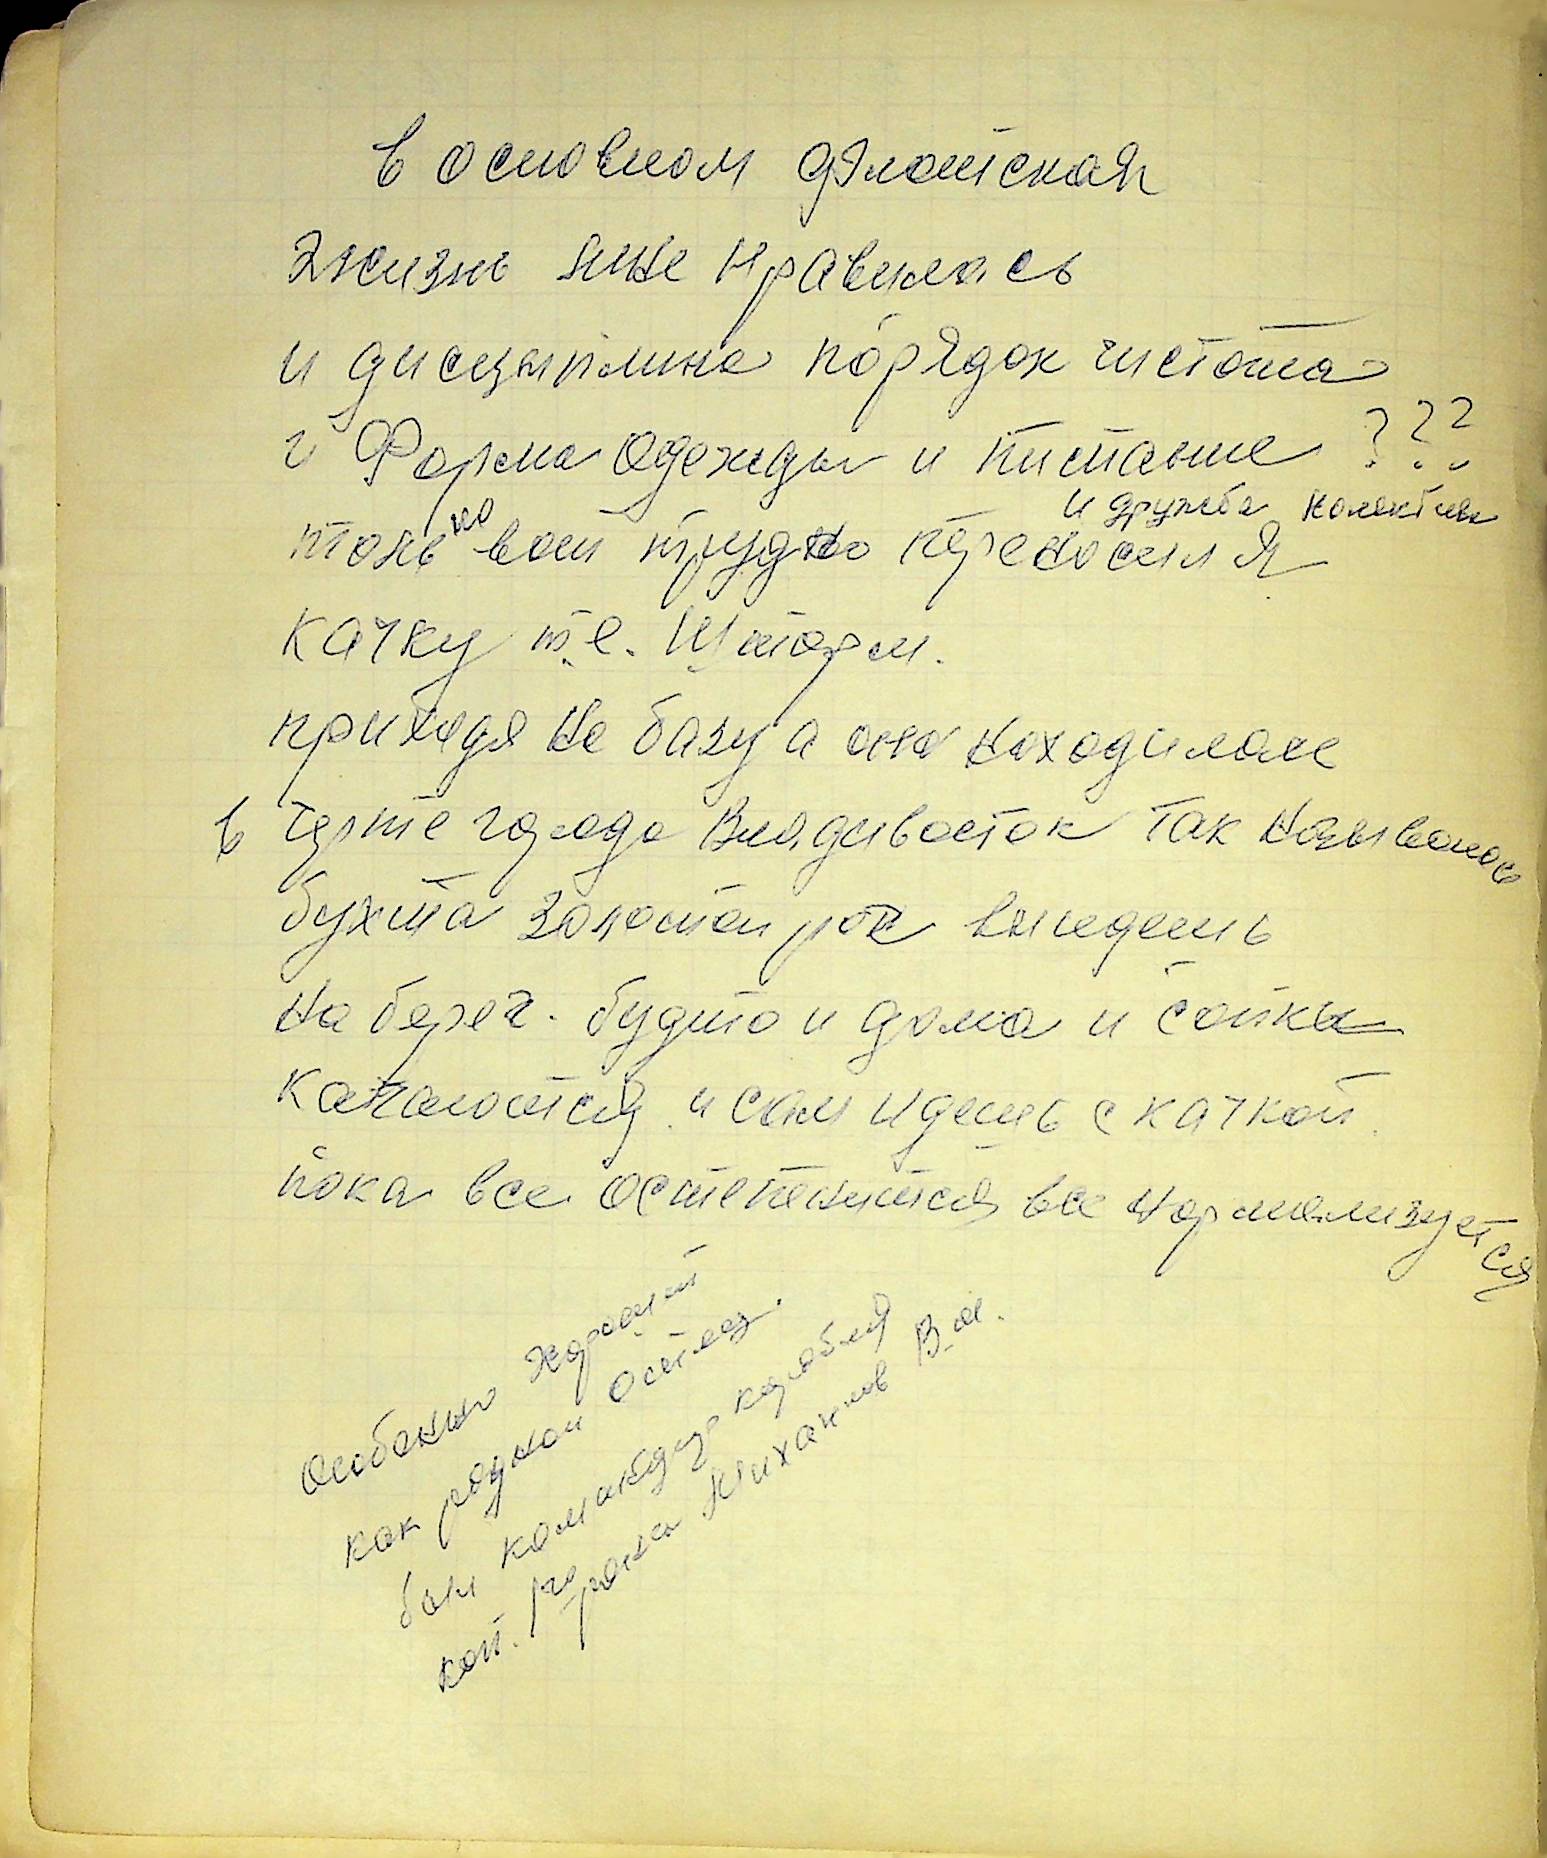 в основном флотская
жизнь мне нравилась
и дисцыплина порядок чистота
и Форма одежды и питание ???
и дружба колектива
только вот трудно переносил я
качку т.е. Шторм.
приходя на базу а она находилась
в черте города Владивосток так называлось
бухта золотой рог выйдешь
на берег. будто и дома и сопки
качаются и сам идешь с качкой.
пока все остепенится все нормализуется
Особенно хороший
как родной отец.
был командир корабля
кап. го ранга Михайлов В.М.